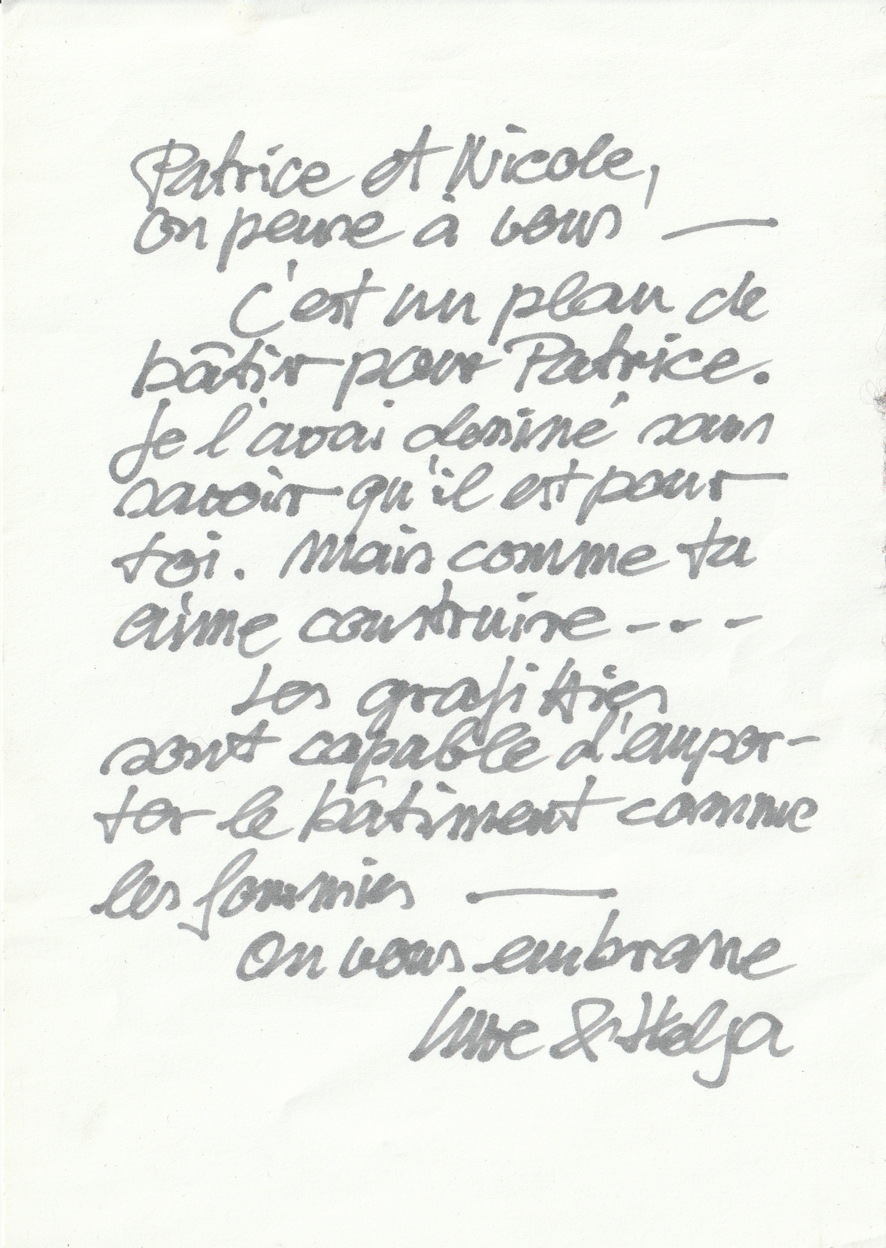 Patrice et Nicole,
on pense à vous —
C'est un plan de
bâtir pour Patrice.
Je l'avai dessiné sans
savoir qu'il est pour
toi. Mais comme tu
aime construire - - -
Les grafitties
sont capable d'empor-
ter le bâtiment comme
les fommies —
On vous embrasse
& Helga